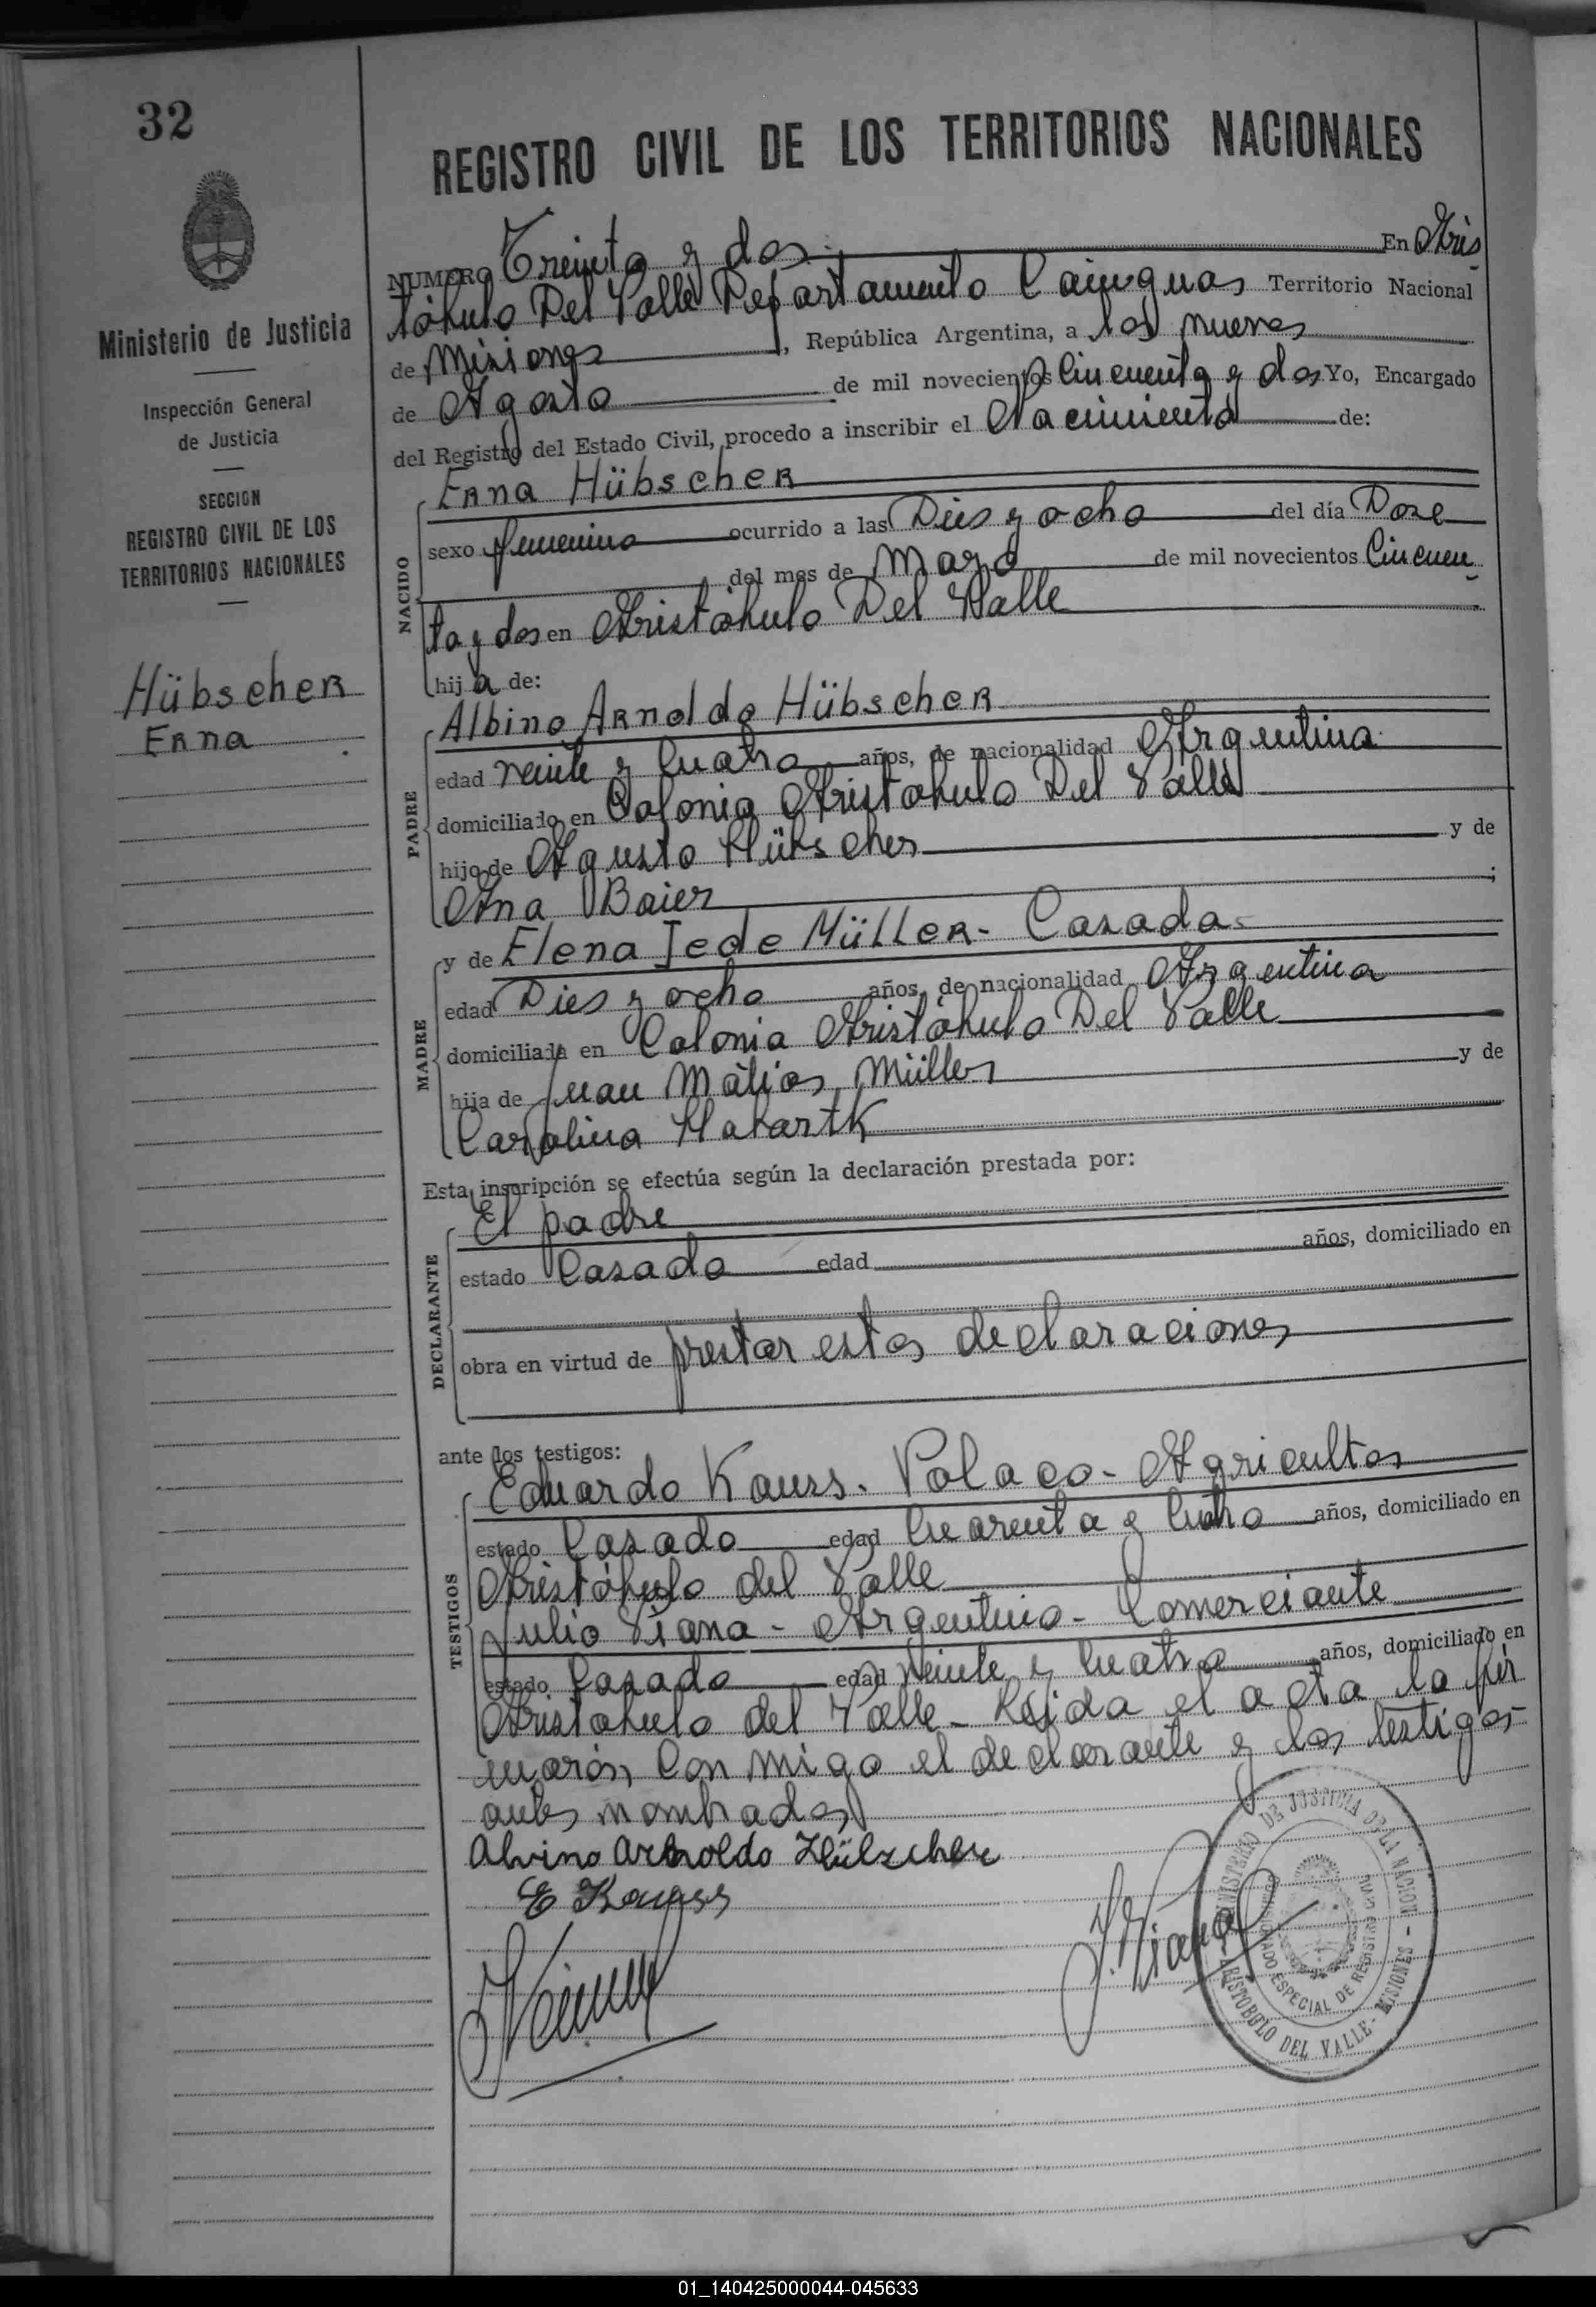 32
REGISTRO CIVIL DE LOS TERRITORIOS NACIONALES
Ministerio de Justicia
Inspección General
de Justicia
SECCION
REGISTRO CIVIL DE LOS
TERRITORIOS NACIONALES
Hübscher
Erna
NUMERO Treinta y dos En Aris
tóbulo Del Valle Departamento Cainguas Territorio Nacional
de Misiones, República Argentina, a los nueve
de Agosto de mil novecientos Cincuenta y dos Yo, Encargado
del Registro del Estado Civil, procedo a inscribir el Nacimiento de:
NACIDO
Erna Hübscher
sexo femenino ocurrido a las Dies y ocho del día Doze
del mes de Marzo de mil novecientos Cincuen
ta y dos en Aristóbulo Del Valle
hija de:
PADRE
Albino Arnoldo Hübscher
edad veinte y cuatro años, de nacionalidad Argentina
domiciliado en Colonia Aristobulo Del Valle
hijo de Agusto Hübscher y de
Ana Baier;
MADRE
y de Elena Iede Müller - Casada -
edad Dies y ocho años, de nacionalidad Argentina
domiciliada en Colonia Aristóbulo Del Valle
hija de Juan Mátias Müller y de
Carolina
Esta inscripción se efectúa según la declaración prestada por:
DECLARANTE
El padre
estado Casado edad años, domiciliado en
obra en virtud de prestar estas declaraciones
ante los testigos:
TESTIGOS
Eduardo Kauss - Polaco - Agricultor
estado Casado edad Cuarenta y Cuatro años, domiciliado en
Aristóbulo del Valle
Julio Viana - Argentino - Comerciante
estado Casado edad veinte y cuatro años, domiciliado en
Aristobulo del Valle - Leida el acta la fir
maron con migo el declarante y los testigos
antes nombrados
Alvino Arnoldo Hübscher
E Kauss
J. Viana
MINISTERIO DE JUSTICIA DE LA NACION - ARISTOBULO DEL VALLE - MISIONES -
ESPECIAL DE REGISTRO CIVIL
01_140425000044-045633